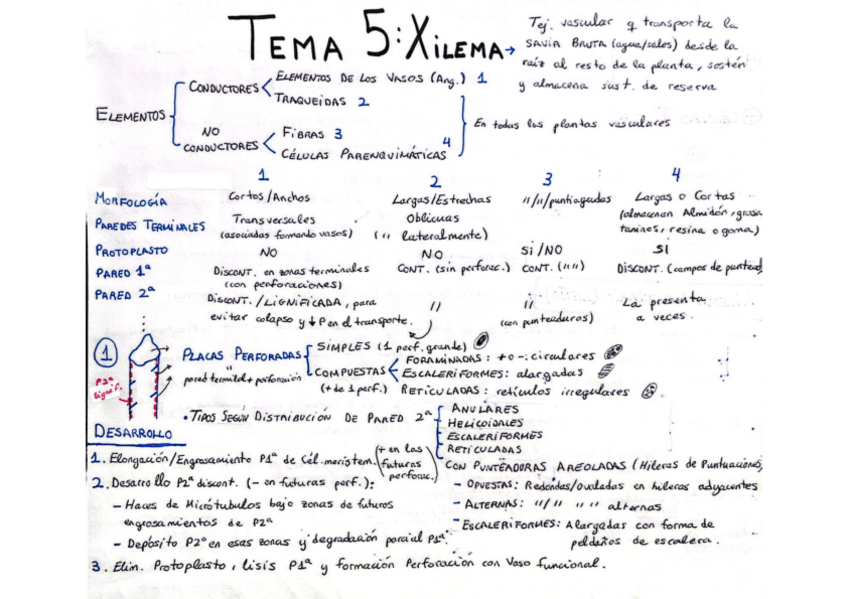 TEMA 5: XILEMA → Tej. vascular q transporta la
SAVIA BRUTA (agua/sales) desde la
raíz al resto de la planta, sostén
y almacena sust. de reserva
ELEMENTOS
CONDUCTORES
ELEMENTOS DE LOS VASOS (Ang.) 1
TRAQUEIDAS 2
NO CONDUCTORES
FIBRAS 3
CÉLULAS PARENQUIMÁTICAS 4
En todas las plantas vasculares
1 2 3 4
MORFOLOGÍA Cortos/Anchos Largas/Estrechas "/"/puntiagudas Largas o Cortas
(almacenan Almidón, grasa
taninos, resina o goma)
PAREDES TERMINALES Transversales Oblicuas
(asociadas formando vasos) (" lateralmente)
PROTOPLASTO NO NO SI/NO SI
PARED 1ª Discont. en zonas terminales CONT. (sin perforac.) CONT. (" ") DISCONT. (campos de puntead)
(con perforaciones)
PARED 2ª DISCONT./LIGNIFICADA, para " " La presenta
evitar colapso y ↓P en el transporte. (con punteaduras) a veces.
1 PLACAS PERFORADAS
pared terminal + perforación
P2ª
lignif.
SIMPLES (1 perf. grande)
COMPUESTAS
(+ de 1 perf.)
FORAMINADAS: + o -: circulares
ESCALERIFORMES: alargadas
RETICULADAS: retículos irregulares
• TIPOS SEGÚN DISTRIBUCIÓN DE PARED 2ª
ANULARES
HELICOIDALES
ESCALERIFORMES
RETICULADAS
CON PUNTEADURAS AREOLADAS (Hileras de Puntuaciones)
- OPUESTAS: Redondas/ovaladas en hileras adyacentes
- ALTERNAS: "/" " " alternas
- ESCALERIFORMES: Alargadas con forma de
peldaños de escalera.
DESARROLLO
1. Elongación/Engrosamiento P1ª de Cél. meristem. (+ en las
futuras
perforac.)
2. Desarrollo P2ª discont. (- en futuras perf.):
- Haces de Microtúbulos bajo zonas de futuros
engrosamientos de P2ª
- Depósito P2ª en esas zonas y degradación parcial P1ª
3. Elim. Protoplasto, lisis P1ª y formación Perforación con Vaso funcional.